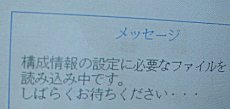 メッセージ
構成情報の設定に必要なファイルを
読み込み中です。
しばらくお待ちください・・・